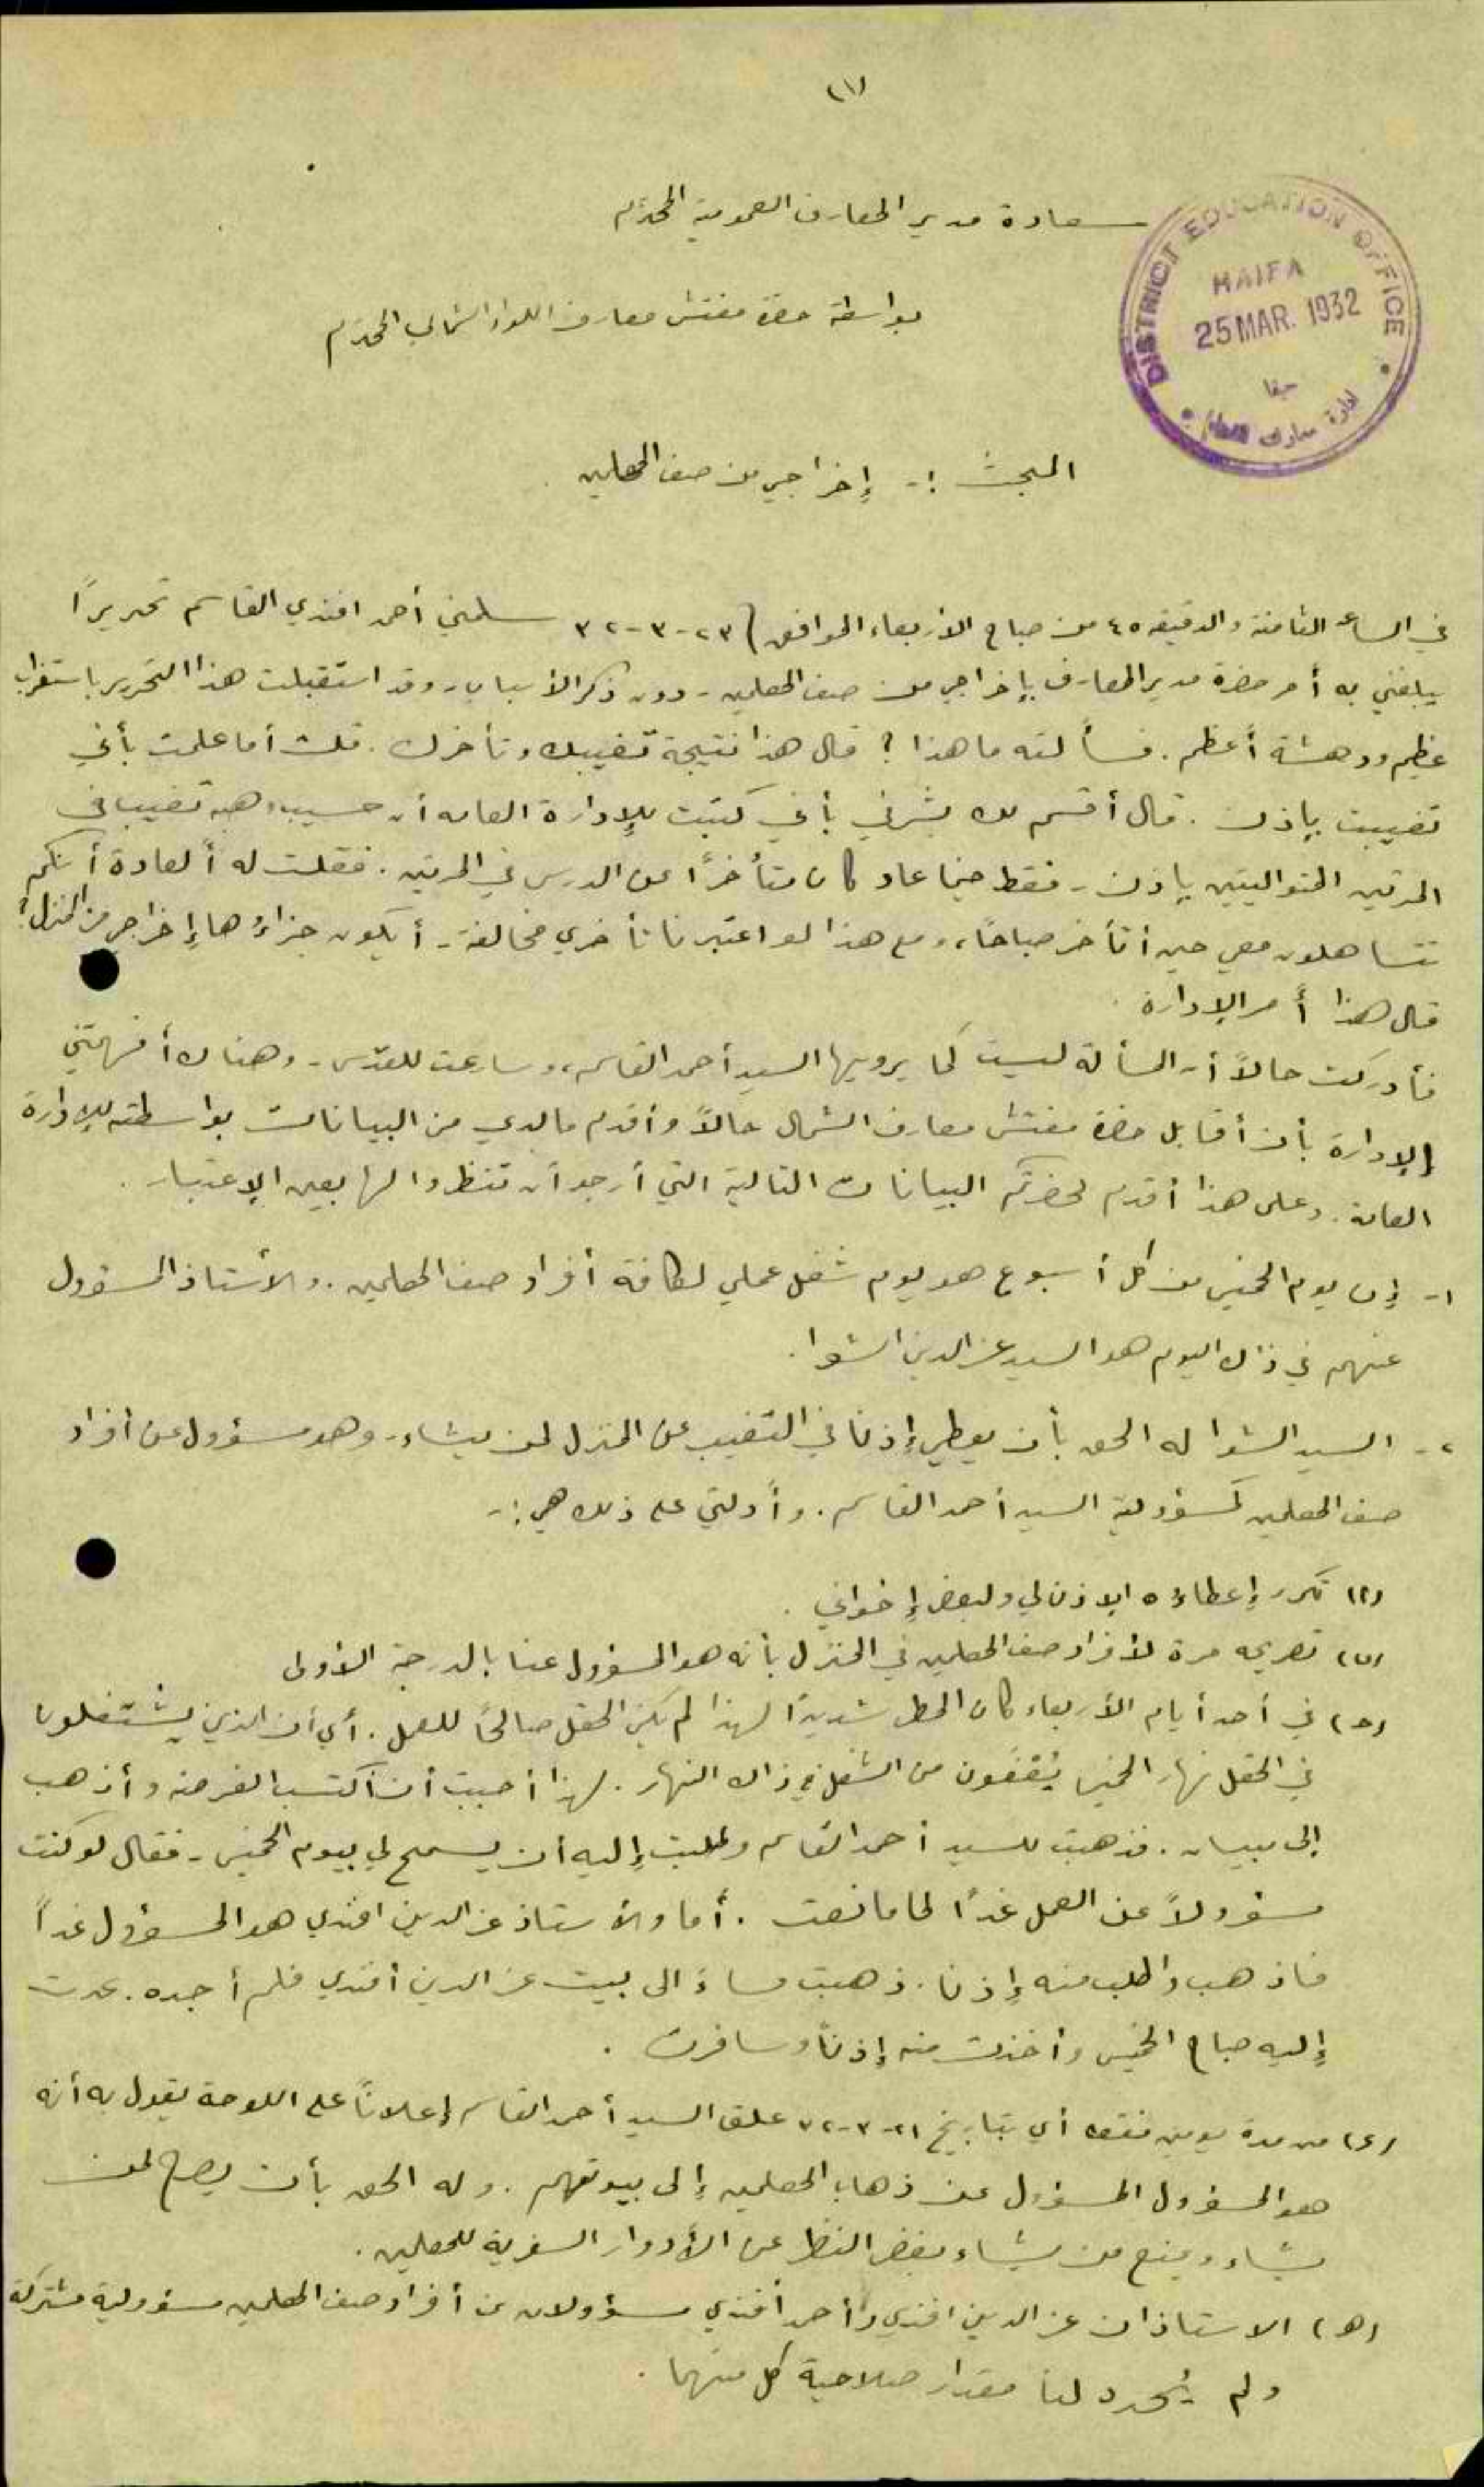 (١)
سعادة مدير المعارف العمومية المحترم
DISTRICT EDUCATION OFFICE
HAIFA
25 MAR. 1932
حيفا
ادارة معارف
بواسطة حضرة مفتش معارف اللواء الشمالي المحترم
المبحث :- إخراجي من صف المعلمين .
في الساعة الثامنة والدقيقة ٤٥ من صباح الأربعاء الموافق ٢٣-٣-٣٢ سلمني أحمد افندي القاسم تحريرًا
يبلغني به أمر حضرة مدير المعارف بإخراجي من صف المعلمين - دون ذكر الأسباب - وقد استقبلت هذا التحرير باستغراب
عظيم ودهشة أعظم . فسألته ما هذا ؟ قال هذا نتيجة تغيبك وتأخرك . قلت أما علمت بأني
تغيبت بإذن . قال أقسم لك بشرفي بأني كتبت للإدارة العامة أن حسيب وهبه تغيب في
المرتين المتواليتين بإذن - فقط حينما عاد كان متأخرًا عن الدرس في المرتين . فقلت له ألعادة أنكم
تتساهلون معي حين أتأخر صباحًا، ومع هذا لو اعتبرنا تأخري مخالفة - أيكون جزاؤها إخراجي من المنزل ؟
قال هذا أمر الإدارة .
فأدركت حالاً أن المسألة ليست كما يرويها السيد أحمد القاسم، وسارعت للقدس - وهناك أفهمتني
الإدارة بأن أقابل حضرة مفتش معارف الشمال حالاً وأقدم ما لدي من البيانات بواسطته للإدارة
العامة . وعلى هذا أقدم لحضرتكم البيانات التالية التي أرجو أن تنظروا لها بعين الإعتبار .
١- إن يوم الخميس من كل أسبوع هو يوم شغل عملي لكافة أفراد صف المعلمين . والأستاذ المسؤول
عنهم في ذاك اليوم هو السيد عز الدين الشوا .
٢- السيد الشوا له الحق بأن يعطي إذنًا في التغيب عن المنزل لمن يشاء - وهو مسؤول عن أفراد
صف المعلمين كمسؤولية السيد أحمد القاسم . وأدلتي على ذلك هي :-
(أ) تكرر إعطاؤه الإذن لي ولبعض إخواني .
(ب) تصريحه مرة لأفراد صف المعلمين في المنزل بأنه هو المسؤول عنا بالدرجة الأولى
(ح) في أحد أيام الأربعاء كان المطر شديدًا لهذا لم يكن الحقل صالحًا للعمل . أي أن الذين يشتغلون
في الحقل نهار الخميس يُعْفَون من الشغل في ذاك النهار . لهذا أحببت أن أكتسب الفرصة وأذهب
إلى بيسان . فذهبت للسيد أحمد القاسم وطلبت إليه أن يسمح لي بيوم الخميس - فقال لو كنت
مسؤولاً عن العمل غدًا لما مانعت . أما والأستاذ عز الدين افندي هو المسؤول غدًا
فاذهب واطلب منه إذنا . ذهبت مساءً الى بيت عز الدين أفندي فلم أجده . عدت
إليه صباح الخميس وأخذت منه إذنًا وسافرت .
(ء) من مدة يومين فقط أي بتاريخ ٢١-٣-٣٢ علق السيد أحمد القاسم إعلانًا على اللوحة يقول به أنه
هو المسؤول المسؤول عن ذهاب المعلمين إلى بيوتهم . وله الحق بأن يصرح لمن
يشاء ويمنع من يشاء بغض النظر عن الأدوار السفرية للمعلمين .
(ه) الاستاذان عز الدين افندي وأحمد أفندي مسؤولان عن أفراد صف المعلمين مسؤولية مشتركة
ولم يُحدد لنا مقدار صلاحية كل منهما .